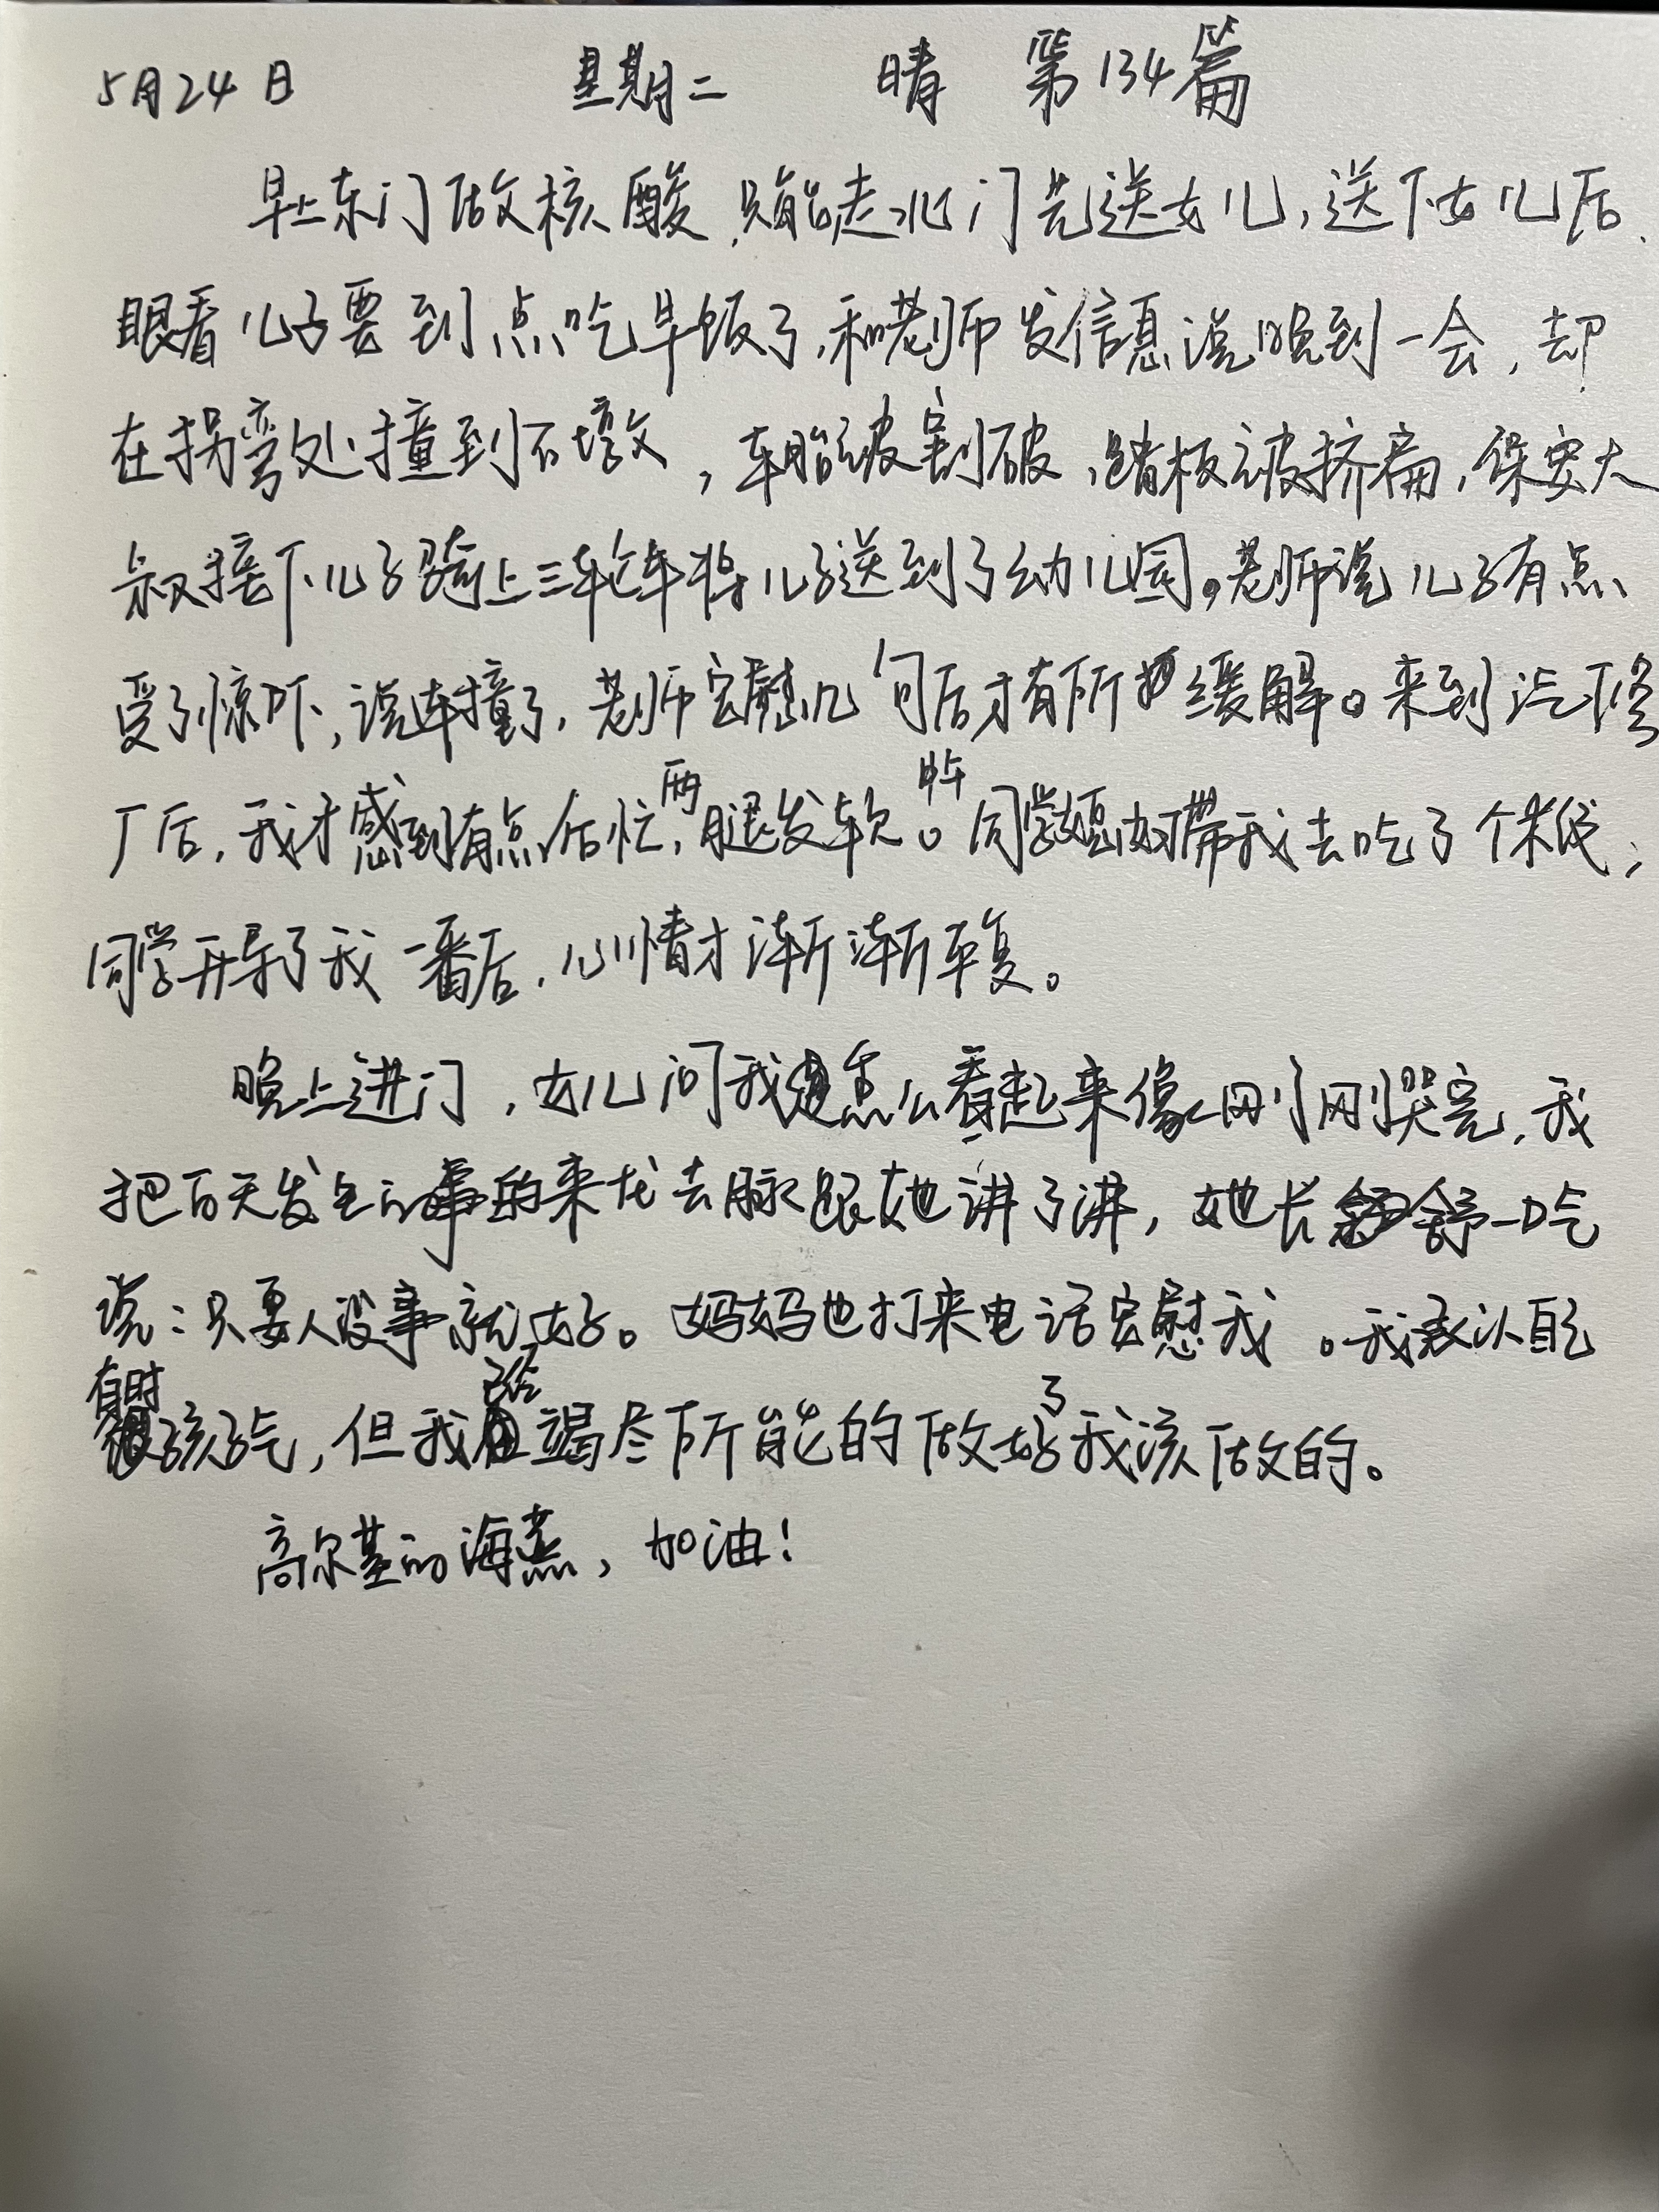 5月24日 星期二 晴 第134篇
早上东门做核酸,只能走北门先送女儿,送下女儿后,
眼看儿子要到点吃早饭了,和老师发信息说晚到一会,却
在拐弯处撞到石墩,车胎被割破,踏板被挤扁,保安大
叔接下儿子骑上三轮车将儿子送到了幼儿园。老师说儿子有点
受了惊吓,说车撞了,老师安慰几句后才有所缓解。来到汽修
厂后,我才感到有点后怕,两腿发软。中午同学媳妇带我去吃了个米线,
同学开导了我一番后,心情才渐渐平复。
晚上进门,女儿问我怎么看起来像刚刚哭完,我
把白天发生的事的来龙去脉跟她讲了讲,她长舒一口气
说:只要人没事就好。妈妈也打来电话安慰我。我承认自己
有时孩子气,但我已经竭尽所能的做好了我该做的。
高尔基的海燕,加油!